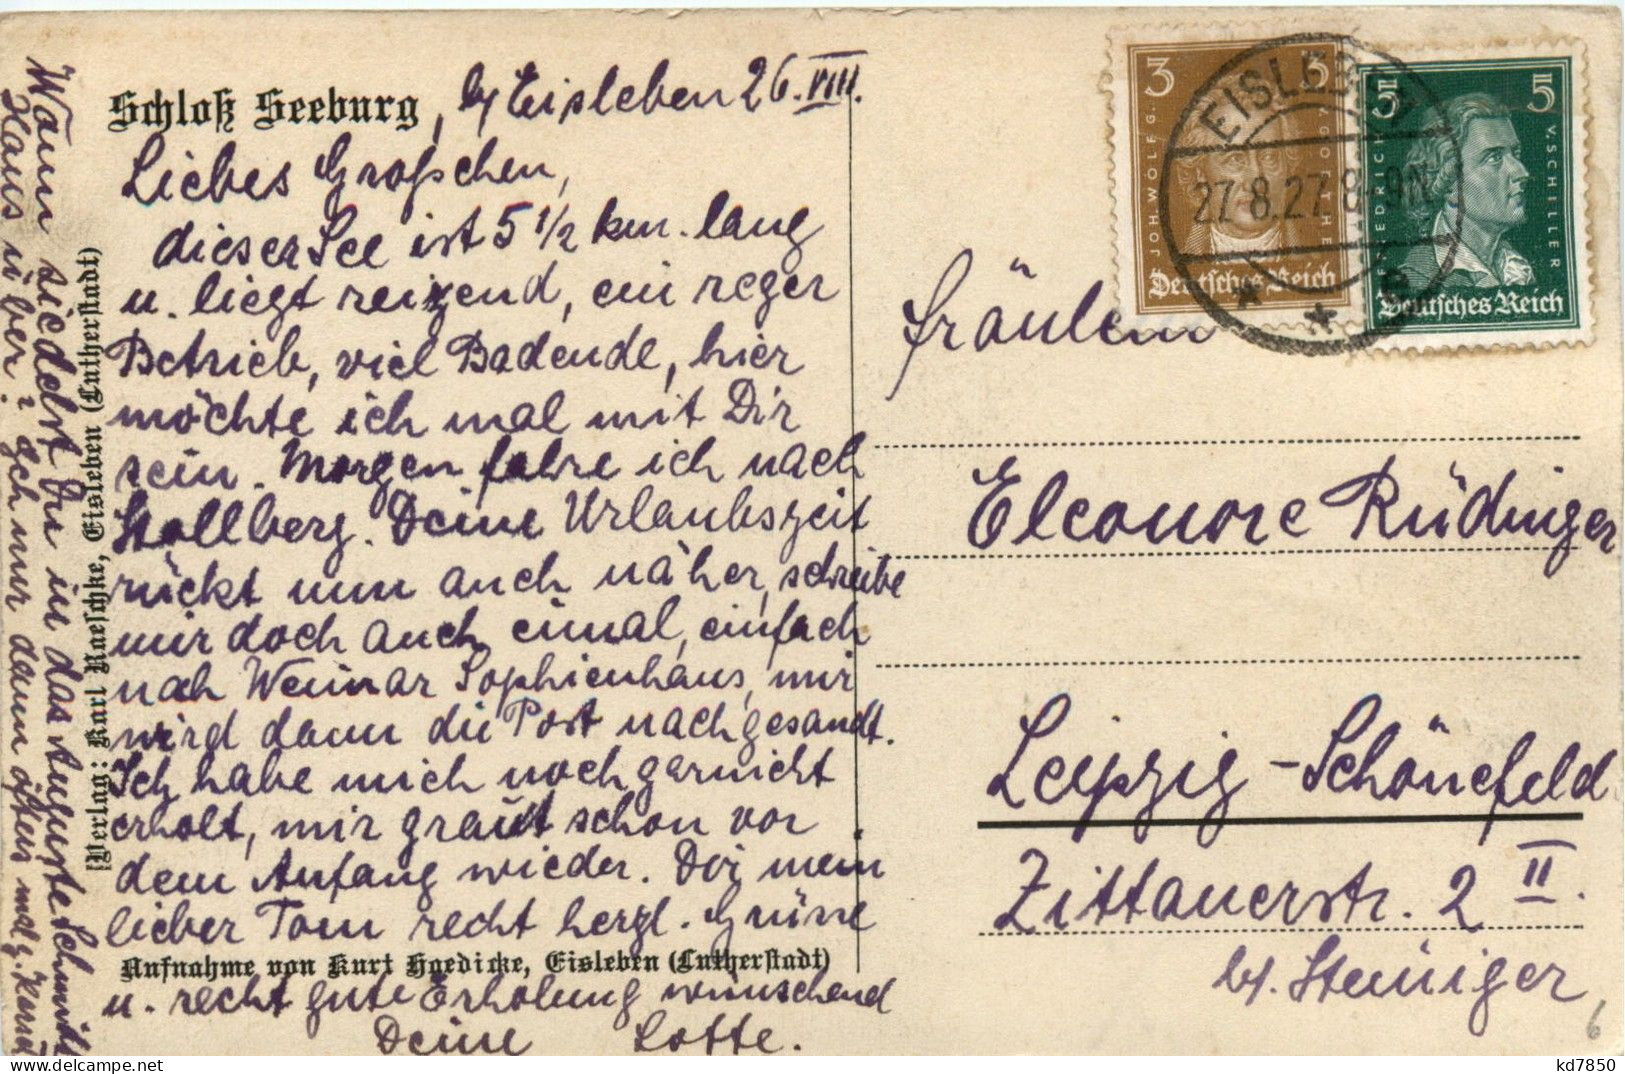 Schloß Seeburg, b/ Eisleben 26. VIII.
Liebes Großchen,
dieser See ist 5 1/2 km. lang
u. liegt reizend, ein reger
Betrieb, viel Badende, hier
möchte ich mal mit Dir
sein. Morgen fahre ich nach
Stollberg. Deine Urlaubszeit
rückt nun auch näher, schreibe
mir doch auch einmal, einfach
nach Weimar Sophienhaus, mir
wird dann die Post nachgesandt.
Ich habe mich noch garnicht
erholt, mir graut schon vor
dem Anfang wieder. Dir mein
lieber Tom recht herzl. Grüße
Aufnahme von Kurt Haedicke, Eisleben (Lutherstadt)
u. recht gute Erholung wünschend
Deine Lotte.
Wann siedelst Du in das Auguste Schmidt
Haus über? Ich nur dann öfters mal z.
[Verlag: Karl Raeschke, Eisleben (Lutherstadt)
3 3
JOH. WOLFG. V. GOETHE
Deutsches Reich
5 5
FRIEDRICH V SCHILLER
Deutsches Reich
EISLEBEN
27.8.27. 8-9N
* * e
Fräulein
Eleonore Rüdinger
Leipzig-Schönefeld
Zittauerstr. 2 II.
b/. Steiniger
6
kd7850